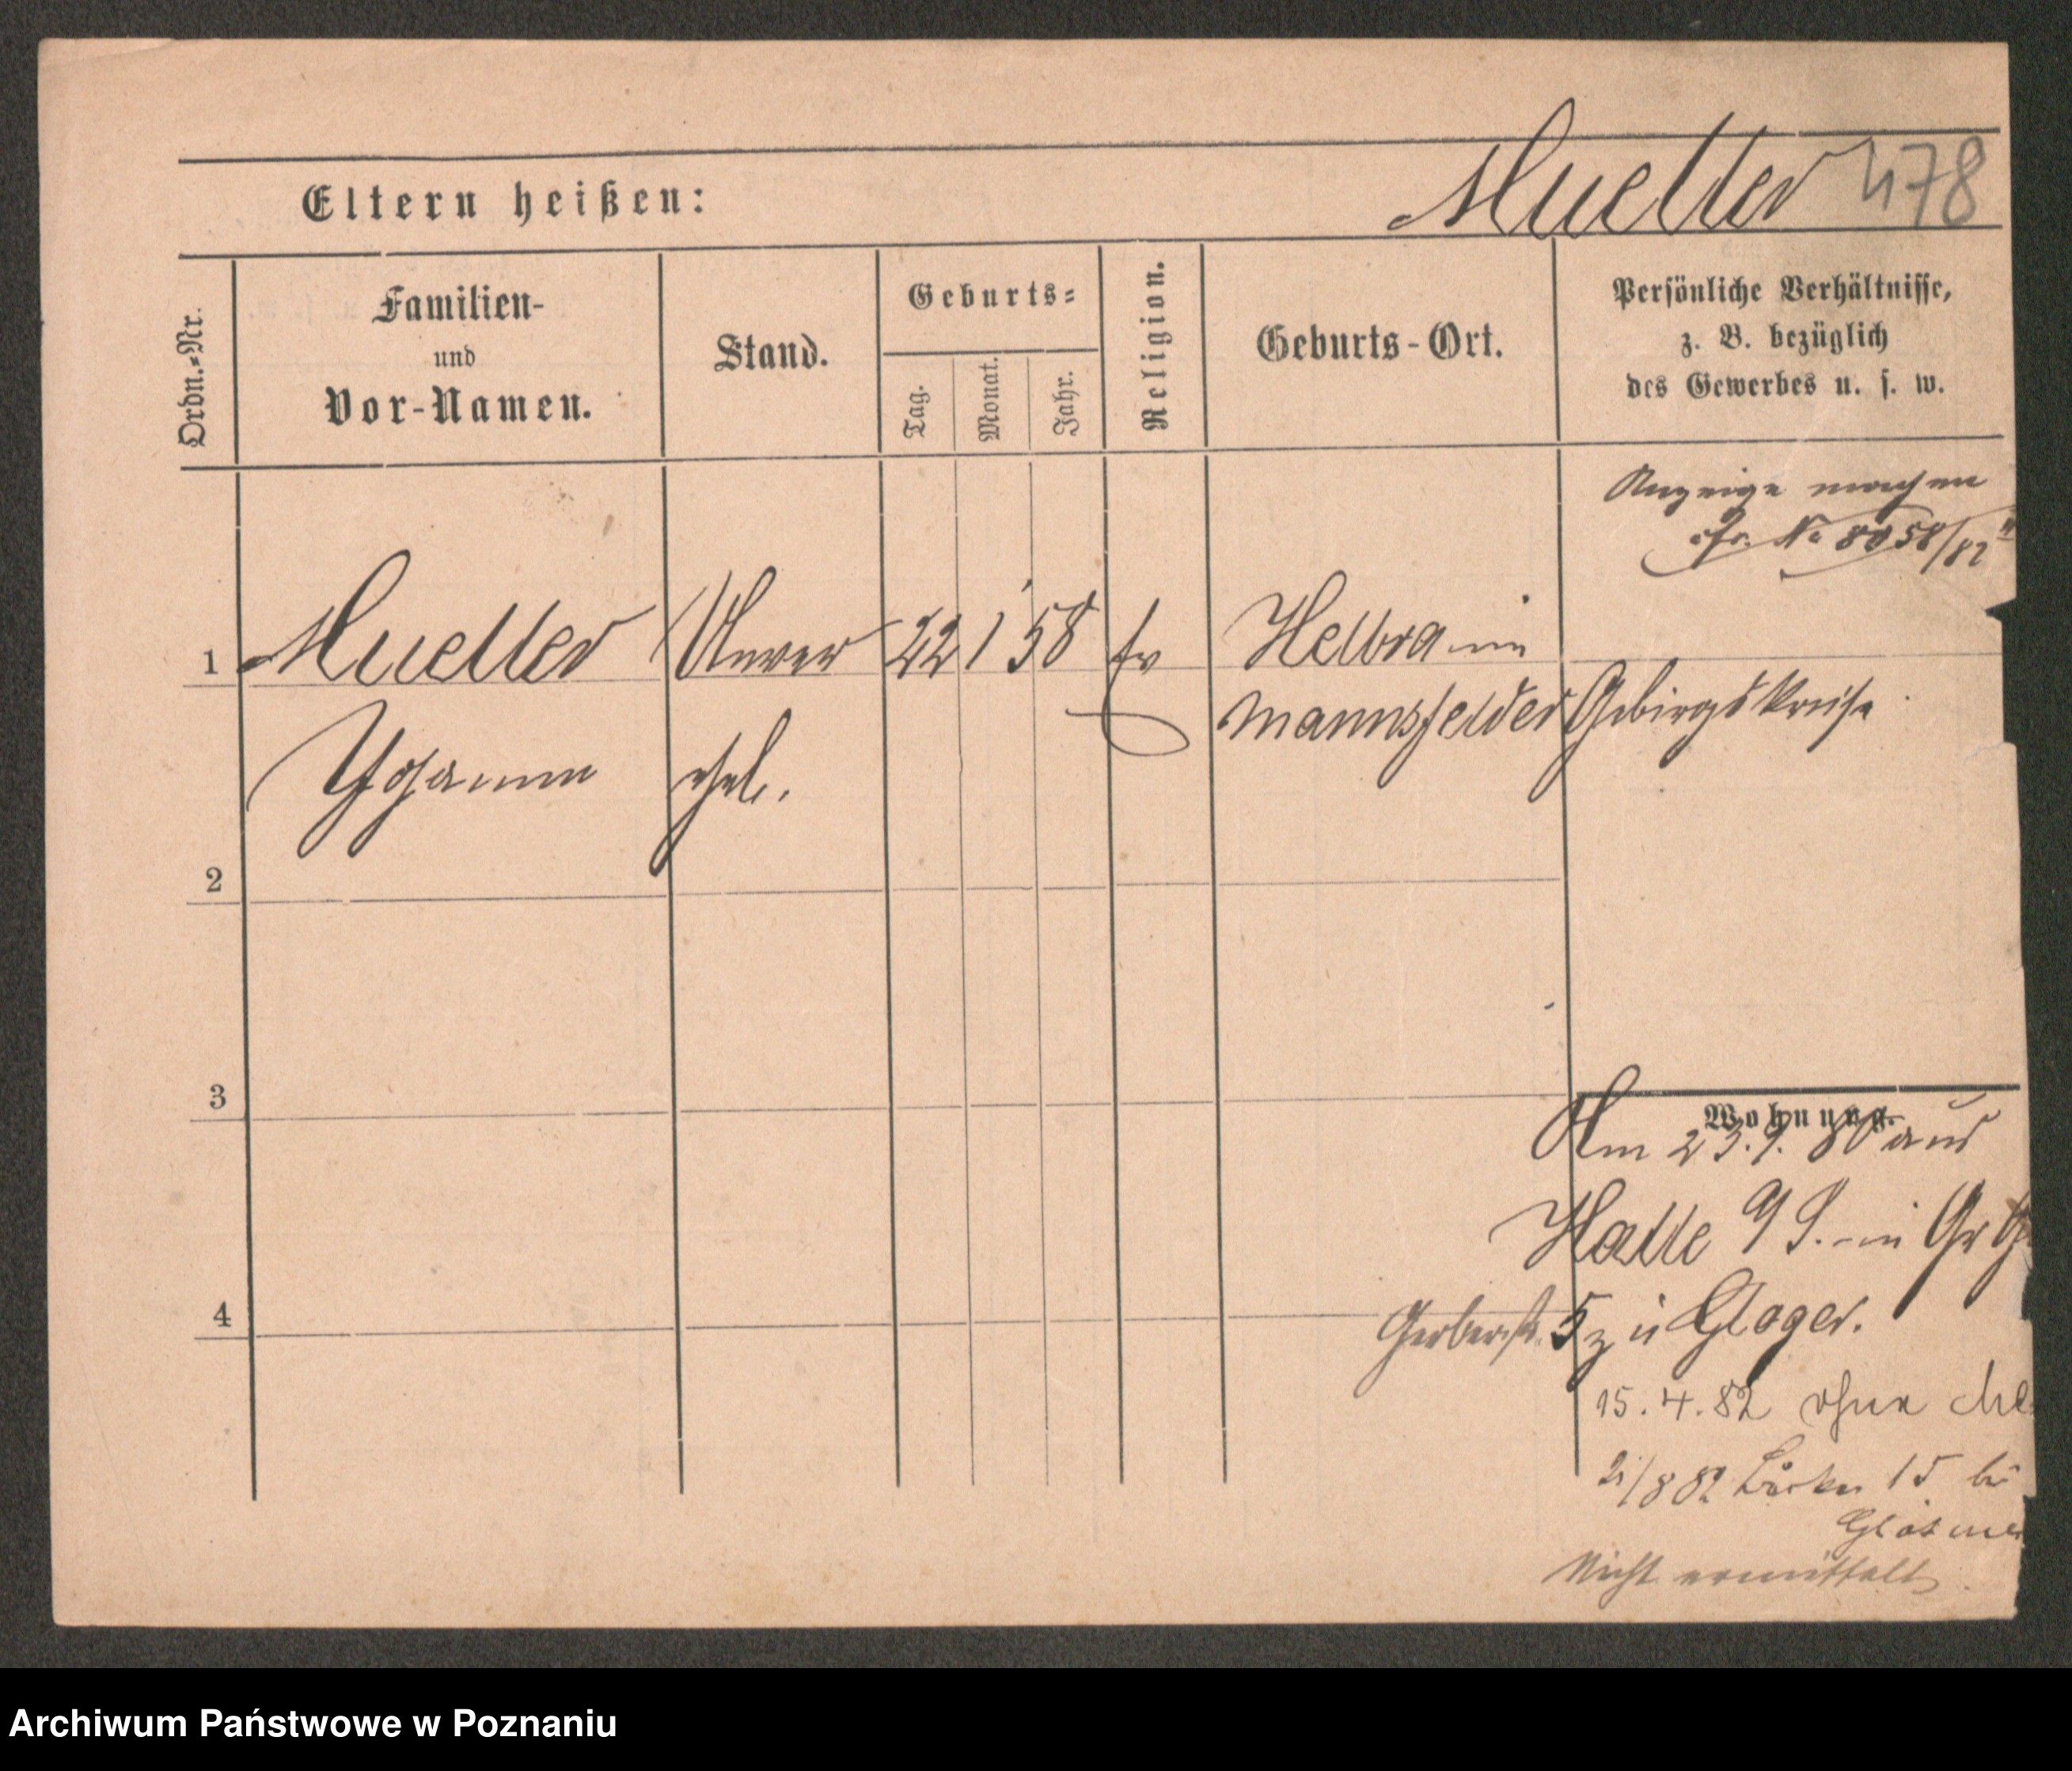 Mueller 478
Eltern heißen:
Ordn.-Nr.
Familien-
und
Vor-Namen.
Stand.
Geburts-
Tag.
Monat.
Jahr.
Religion.
Geburts-Ort.
Persönliche Verhältnisse,
z. B. bezüglich
des Gewerbes u. s. w.
Anzeige machen
cfr. No 8058/82
1 Mueller 22 1 58 ev Helbra im
Mannsfelder Gebirgskreise
Johann
2
3
4
Wohnung.
Am 23.9.80 aus
Halle
Gerberstr. 5 Gloger.
15.4.82 ohne
21/8 82 15 bei
Nicht ermittelt.
Archiwum Państwowe w Poznaniu